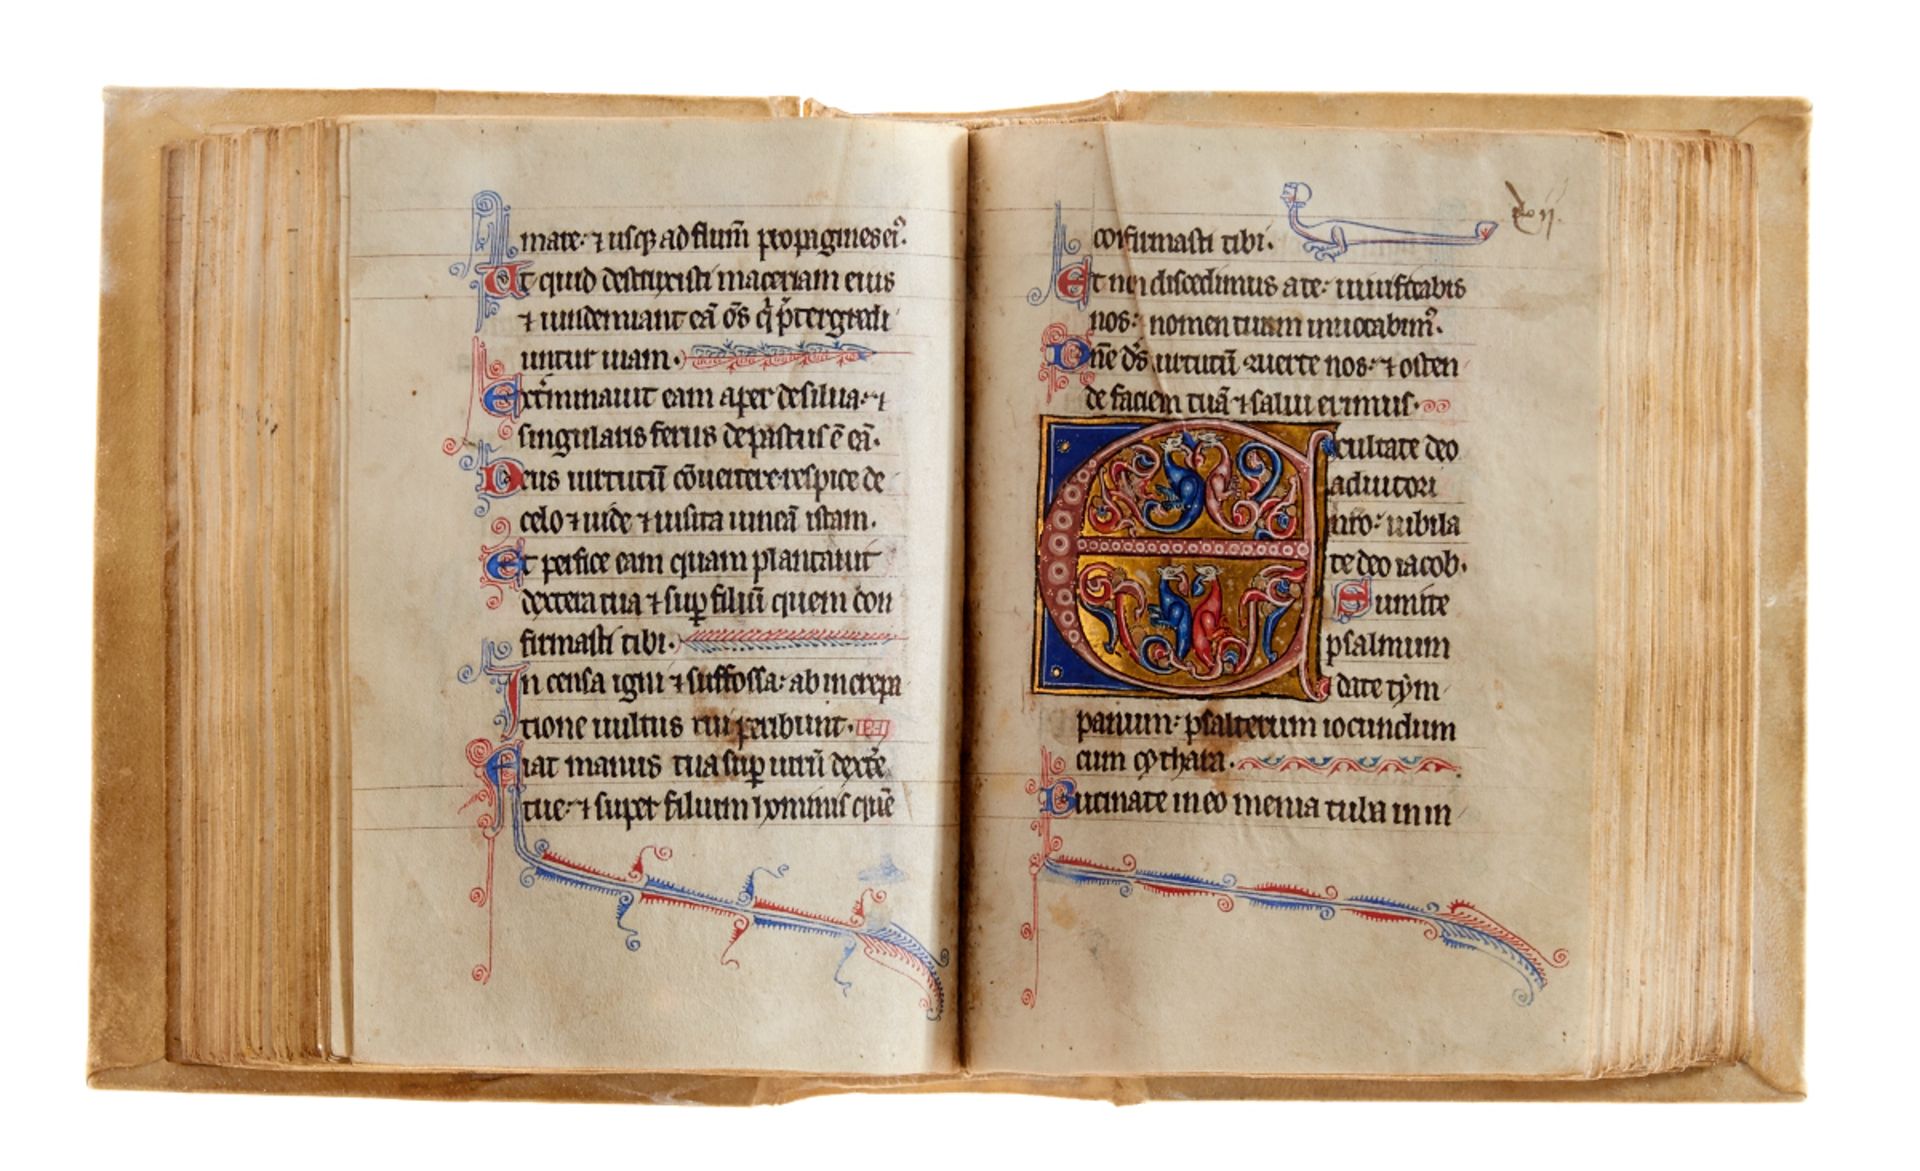 mare· ⁊ usq; ad flum̄ propagines ei⁹.
Ut quid destruxisti maceriam eius
⁊ uindemiant eā om̄s q̄ p̄tergredi
untur uiam·
Exterminauit eam aper de silua· ⁊
singularis ferus depastus ē eā·
Deus uirtutū cōuertere· respice de
celo ⁊ uide ⁊ uisita uineā istam·
Et perfice eam quam plantauit
dextera tua ⁊ sup filiū quem con
firmasti tibi·
Incensa igni ⁊ suffossa· ab increpa
tione uultus tui peribunt·
Fiat manus tua sup uirū dexte
tue· ⁊ super filium hominis quē
confirmasti tibi·
Et non discedimus a te· uiuificabis
nos· nomen tuum inuocabim⁹·
Dn̄e ds̄ uirtutū ꝯuerte nos· ⁊ osten
de faciem tuā ⁊ salui erimus·
Exultate deo
adiutori
nr̄o· iubila
te deo iacob·
Sumite
psalmum
⁊ date tym
panum· psalterium iocundum
cum cythara·
Bucinate in eo menia tuba in in